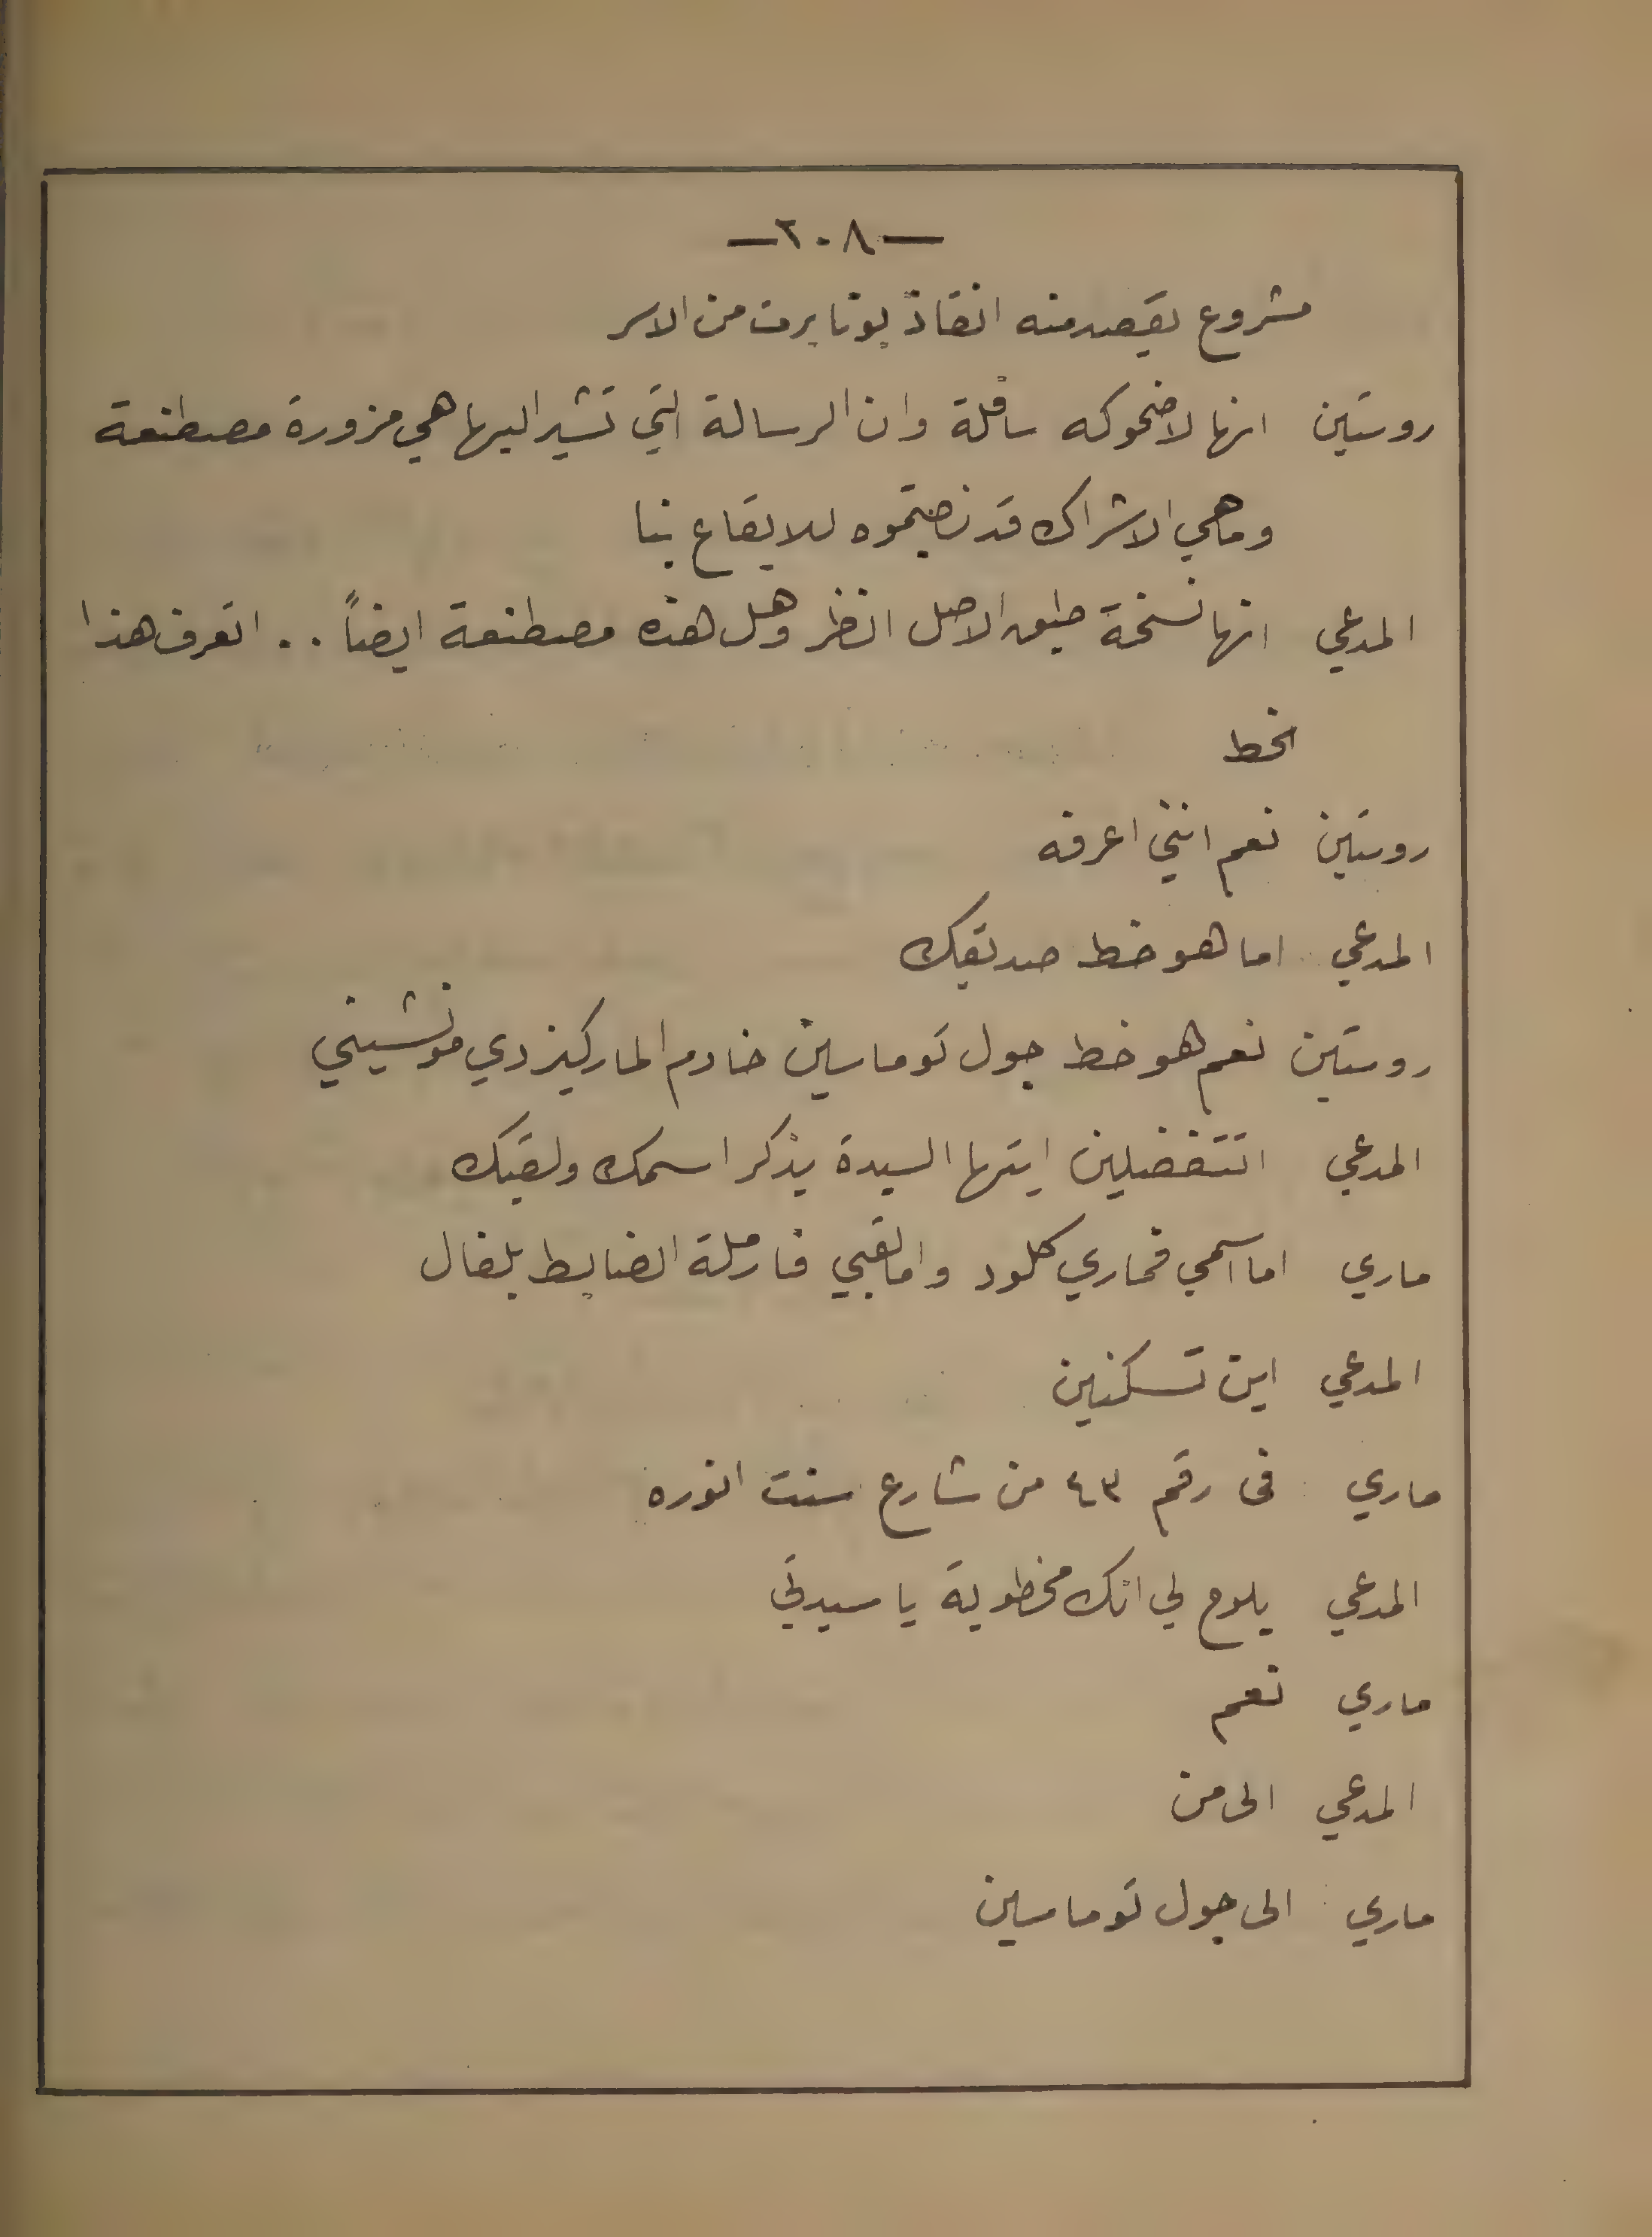 —٢٠٨—
مشروع يقصد منه انقاذ بونابرت من الاسر
روستين انها لاضحوكه سافلة وان الرسالة التي تشير اليها هي مزورة مصطنعة
وما هي الا شراك قد نصبتموه للايقاع بنا
المدعي انها نسخة طبق الاصل انظر وهل هذه مصطنعة ايضاً .. اتعرف هذا
الخط
روستين نعم انني اعرفه
المدعي اما هو خط صديقك
روستين نعم هو خط جول توماسين خادم الماركيز دي مونشيني
المدعي اتتفضلين ايتها السيدة بذكر اسمك ولقبك
ماري اما اسمي فماري كلود واما لقبي فارملة الضابط بلفال
المدعي اين تسكنين
ماري فى رقم ٤٣ من شارع سنت انوره
المدعي يلوح لي انك مخطوبة يا سيدتي
ماري نعم
المدعي الى من
ماري الى جول توماسين